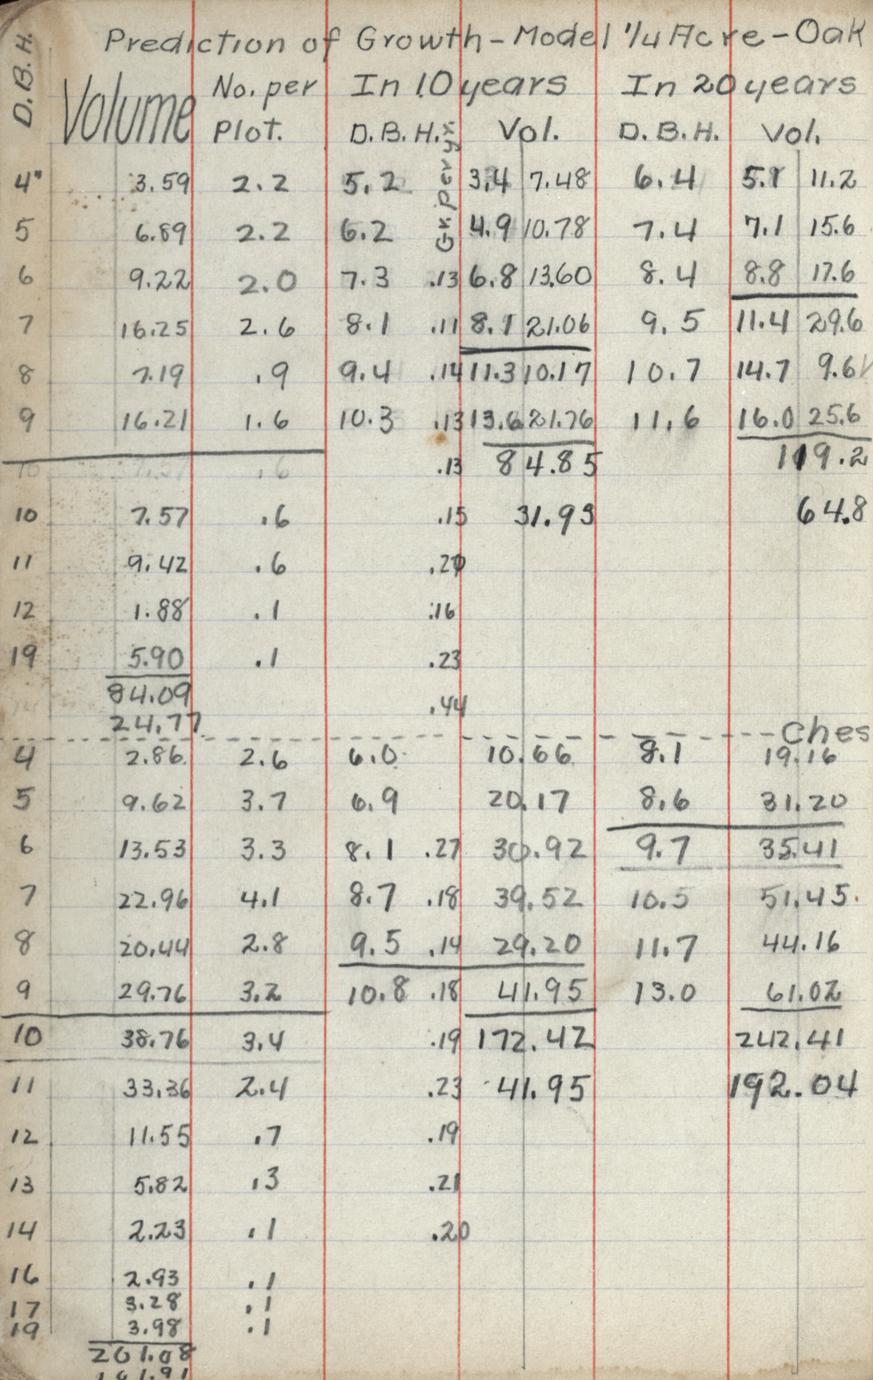 Prediction of Growth - Model 1/4 Acre - Oak
D.B.H. Volume No. per Plot. In 10 years In 20 years
D.B.H. Gr. per yr. Vol. D.B.H. Vol.
4" 3.59 2.2 5.2 3.4 7.48 6.4 5.1 11.2
5 6.89 2.2 6.2 4.9 10.78 7.4 7.1 15.6
6 9.22 2.0 7.3 .13 6.8 13.60 8.4 8.8 17.6
7 16.25 2.6 8.1 .11 8.1 21.06 9.5 11.4 29.6
8 7.19 .9 9.4 .14 11.3 10.17 10.7 14.7 9.6
9 16.21 1.6 10.3 .13 13.6 21.76 11.6 16.0 25.6
.6 .13 84.85 119.2
10 7.57 .6 .15 31.93 64.8
11 9.42 .6
12 1.88 .1 .16
19 5.90 .1 .23
84.09
.44
24.77
Ches
4 2.86 2.6 6.0 10.66 8.1 19.16
5 9.62 3.7 6.9 20.17 8.6 31.20
6 13.53 3.3 8.1 .27 30.92 9.7 35.41
7 22.96 4.1 8.7 .18 39.52 10.5 51.45
8 20.44 2.8 9.5 .14 29.20 11.7 44.16
9 29.76 3.2 10.8 .18 41.95 13.0 61.02
10 38.76 3.4 .19 172.42 242.41
11 33.36 2.4 .23 41.95 192.04
12 11.55 .7 .19
13 5.82 .3 .21
14 2.23 .1 .20
16 2.93 .1
17 3.28 .1
19 3.98 .1
201.08